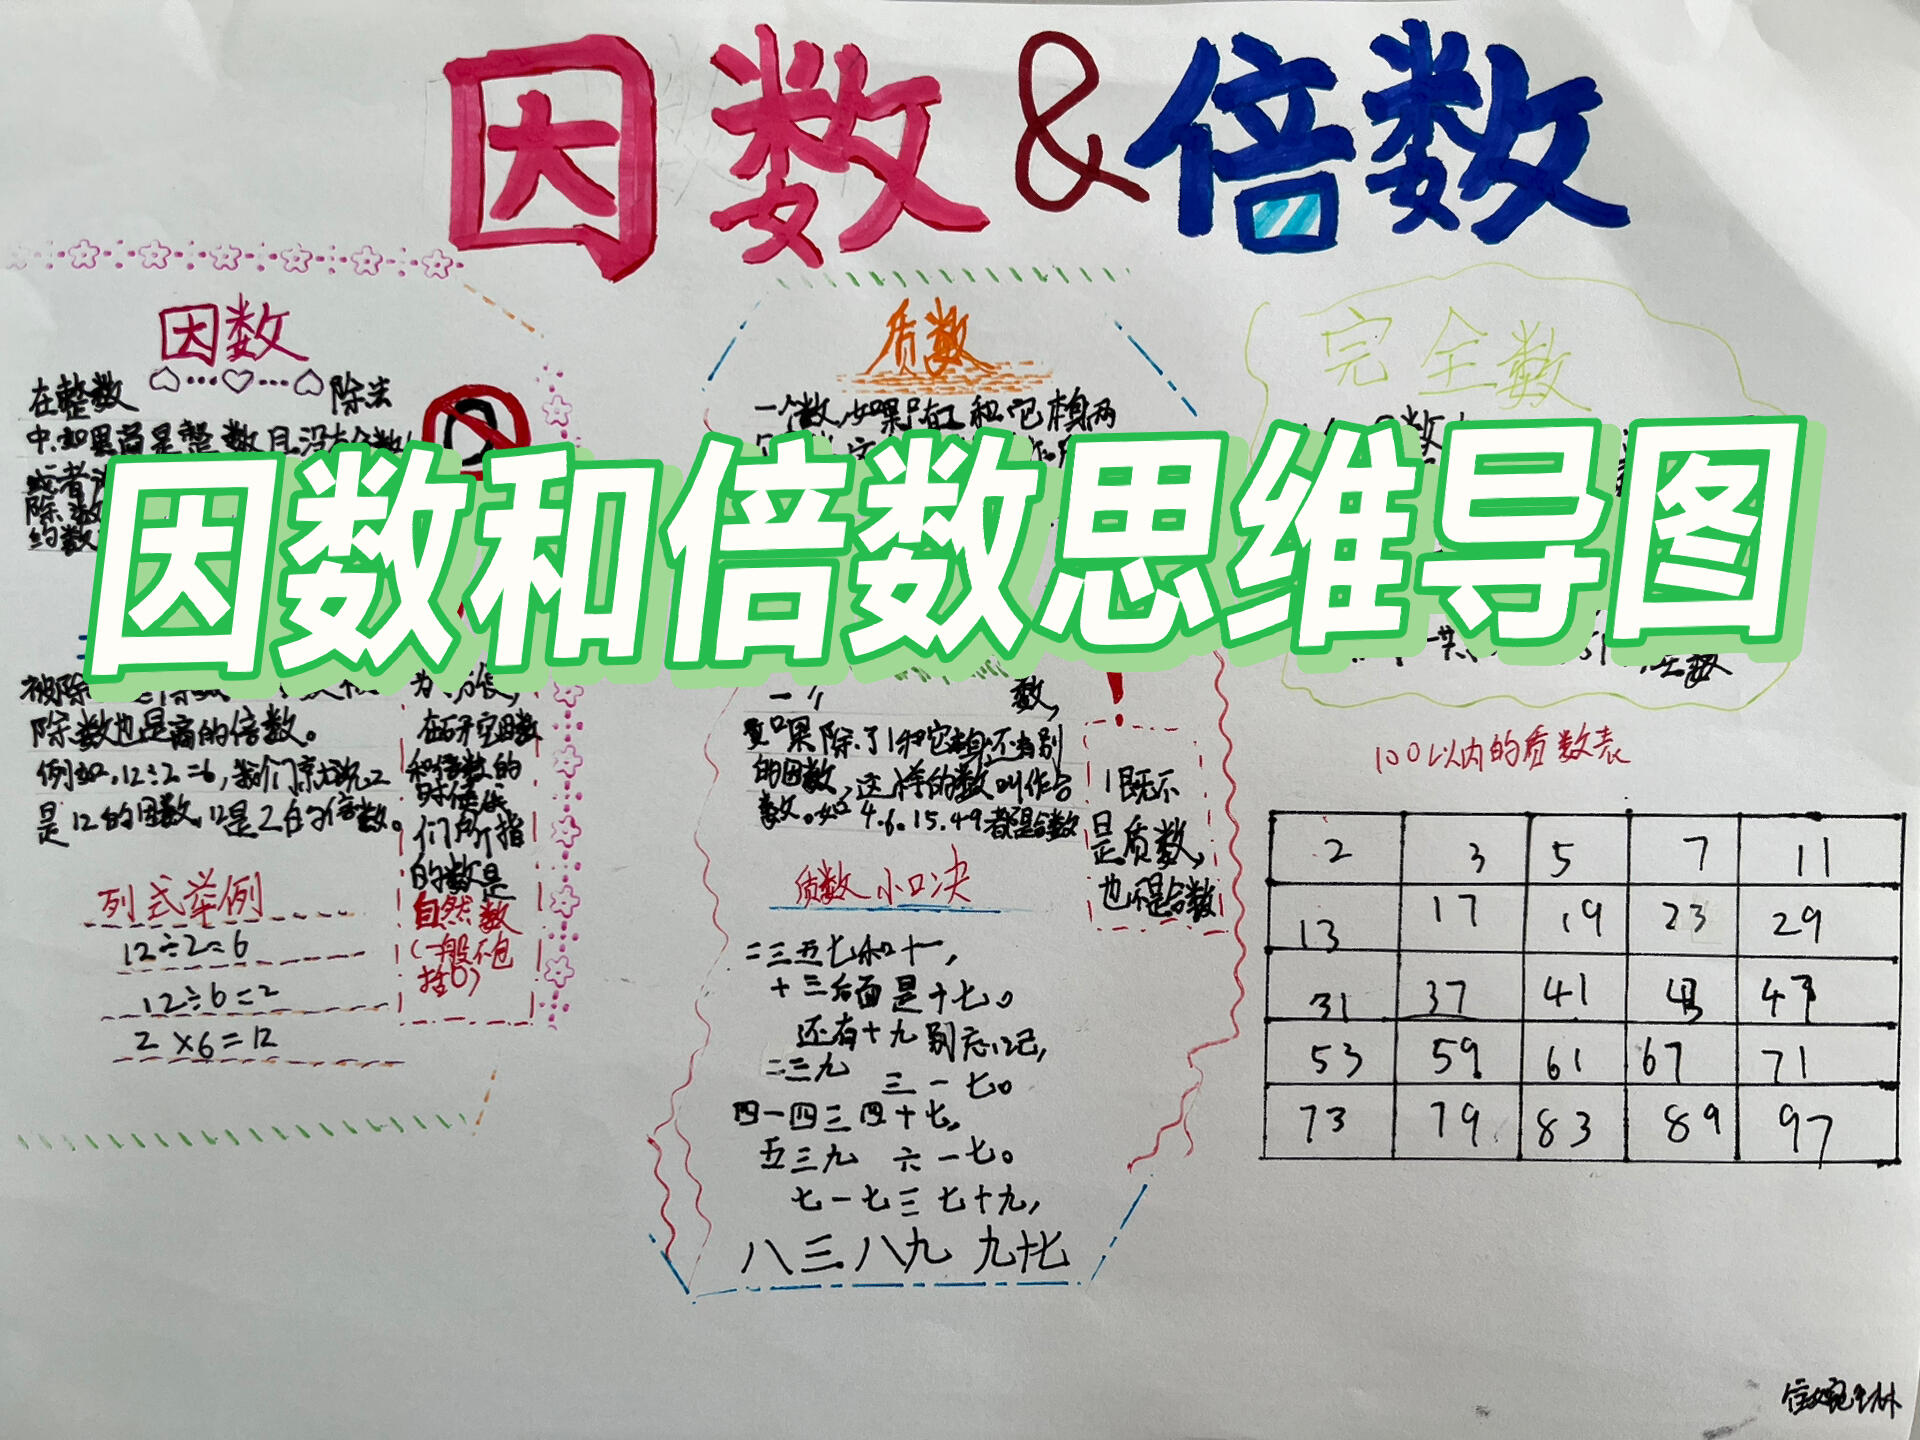 因数&倍数
因数
在整数
除法
中,如果商是整数且没有余数
或者
除数
约数
因数和倍数思维导图
被除
除数也是商的倍数。
例如,12÷2=6,我们就说2
是12的因数,12是2的倍数。
列式举例
12÷2=6
12÷6=2
2×6=12
在研究因数
和倍数的
时候,我
们所指
的数是
自然数
(一般不包
括0)
质数
一个数,如果只有1和它本身两
数,
如果除了1和它本身还有别
的因数,这样的数叫作合
数。如4.6.15.49都是合数
1既不
是质数,
也不是合数
质数小口决
二三五七和十一,
十三后面是十七。
还有十九别忘记,
二三九 三一七。
四一四三四十七,
五三九 六一七。
七一七三七十九,
八三八九 九十七
完全数
100以内的质数表
2 3 5 7 11
13 17 19 23 29
31 37 41 43 47
53 59 61 67 71
73 79 83 89 97